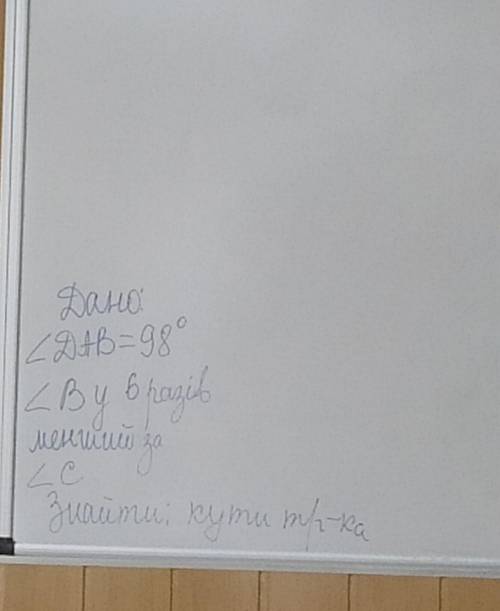 Дано:
∠DAB=98°
∠B у 6 разів
менший за
∠C
Знайти: кути тр-ка